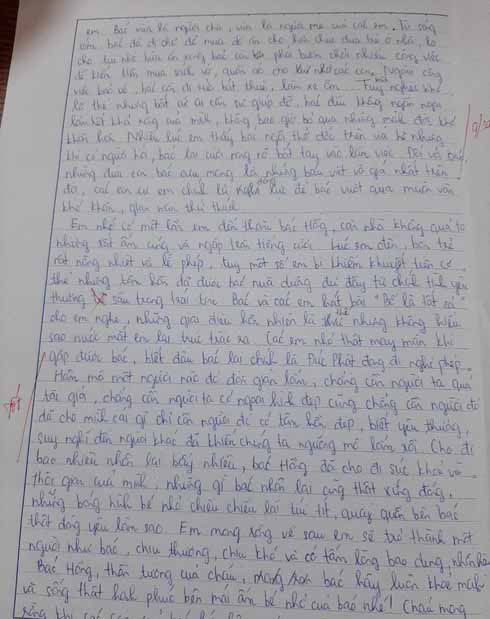 em. Bác vừa là người cha, vừa là người mẹ của các em. Từ sáng
sớm, bác đã đi chợ để mua đồ ăn cho lũ trẻ ở nhà, lo
cho tụi nhỏ bữa ăn xong bác còn phải bươn chải nhiều công việc
để kiếm tiền mua sách vở, quần áo cho
bác còn đi bán
là thế nhưng bất cứ ai cần sự giúp đỡ, bác đều không ngần ngại
làm hết khả năng của mình, không bao giờ bỏ qua những mảnh đời khó
khăn hơn. Nhiều lúc em thấy bác ngồi thở dốc trên vỉa hè nhưng
khi có người hỏi, bác lại cười rạng rỡ bắt tay vào làm việc. Đối với bác,
những đứa con bác cưu mang là những báu vật vô giá nhất trên
đời, các em ấy em chính là động lực để bác vượt qua muôn vàn
khó khăn, gian nan thử thách.
Em nhớ có một lần em đến thăm bác Hồng, căn nhà không quá to
nhưng rất ấm cúng và ngập tràn tiếng cười. Lúc em đến, bọn trẻ
rất nồng nhiệt và lễ phép, tuy một số em bị khiếm khuyết trên cơ
thể nhưng tâm hồn đã được bác nuôi dưỡng đủ đầy từ chính tình yêu
thương sâu trong trái tim. Bác và các em hát bài "Bố là tất cả"
cho em nghe, những giai điệu hồn nhiên là thế nhưng không hiểu
sao nước mắt em lại trực trào ra. Các em nhỏ thật may mắn khi
gặp được bác, biết đâu bác lại chính là Đức Phật đang đi nghỉ phép.
Hâm mộ một người nào đó đơn giản lắm, chẳng cần người ta quá
tài giỏi, chẳng cần người ta có ngoại hình đẹp cũng chẳng cần người đó
đã cho mình cái gì chỉ cần người đó có tâm hồn đẹp, biết yêu thương,
suy nghĩ đến người khác đã khiến chúng ta ngưỡng mộ lắm rồi. Cho đi
bao nhiêu nhận lại bấy nhiêu, bác Hồng đã cho đi sức khoẻ và
thời gian của mình, những gì bác nhận lại cũng thật xứng đáng,
những bóng hình bé nhỏ chiều chiều lại ríu rít, quây quần bên bác
thật đáng yêu làm sao. Em mong rằng về sau em sẽ trở thành một
người như bác, chịu thương, chịu khó và có tấm lòng bao dung, nhân hậu
Bác Hồng, thần tượng của cháu, mong bác hãy luôn khoẻ mạnh
và sống thật hạnh phúc bên mái ấm bé nhỏ của bác nhé! Cháu mong
rằng khi